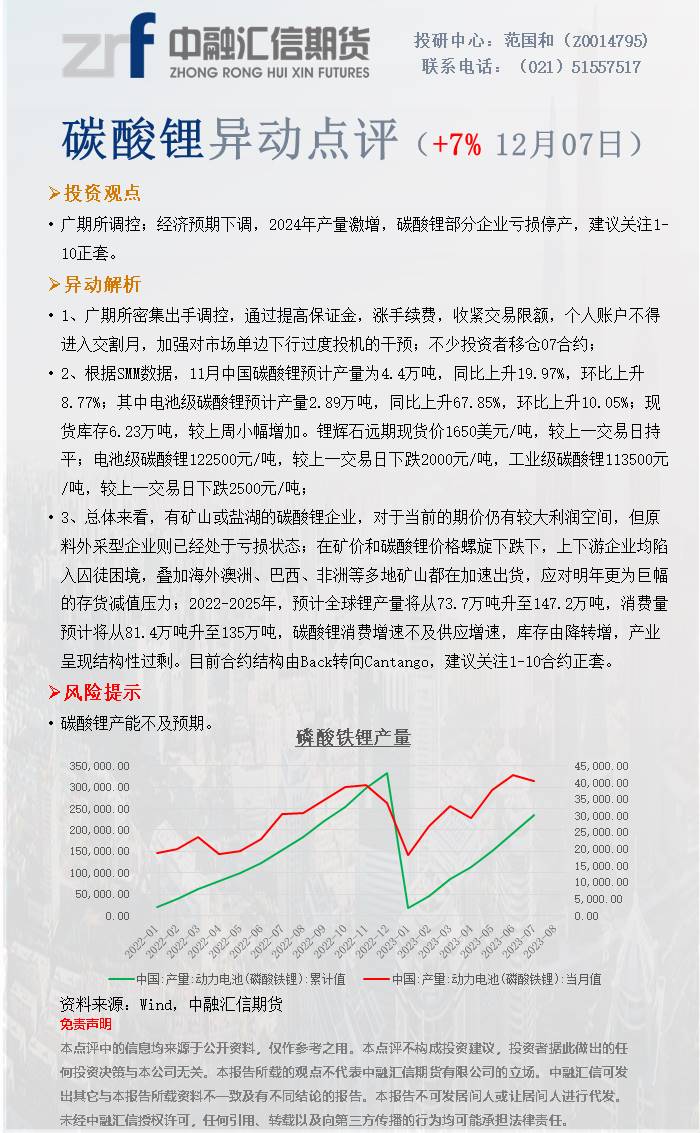 zrf 中融汇信期货
ZHONG RONG HUI XIN FUTURES
投研中心：范国和（Z0014795)
联系电话：（021）51557517
碳酸锂异动点评（+7% 12月07日）
➢投资观点
• 广期所调控；经济预期下调，2024年产量激增，碳酸锂部分企业亏损停产，建议关注1-
10正套。
➢异动解析
• 1、广期所密集出手调控，通过提高保证金，涨手续费，收紧交易限额，个人账户不得
进入交割月，加强对市场单边下行过度投机的干预；不少投资者移仓07合约；
• 2、根据SMM数据，11月中国碳酸锂预计产量为4.4万吨，同比上升19.97%，环比上升
8.77%；其中电池级碳酸锂预计产量2.89万吨，同比上升67.85%，环比上升10.05%；现
货库存6.23万吨，较上周小幅增加。锂辉石远期现货价1650美元/吨，较上一交易日持
平；电池级碳酸锂122500元/吨，较上一交易日下跌2000元/吨，工业级碳酸锂113500元
/吨，较上一交易日下跌2500元/吨；
• 3、总体来看，有矿山或盐湖的碳酸锂企业，对于当前的期价仍有较大利润空间，但原
料外采型企业则已经处于亏损状态；在矿价和碳酸锂价格螺旋下跌下，上下游企业均陷
入囚徒困境，叠加海外澳洲、巴西、非洲等多地矿山都在加速出货，应对明年更为巨幅
的存货减值压力；2022-2025年，预计全球锂产量将从73.7万吨升至147.2万吨，消费量
预计将从81.4万吨升至135万吨，碳酸锂消费增速不及供应增速，库存由降转增，产业
呈现结构性过剩。目前合约结构由Back转向Cantango，建议关注1-10合约正套。
➢风险提示
• 碳酸锂产能不及预期。
磷酸铁锂产量
350,000.00
300,000.00
250,000.00
200,000.00
150,000.00
100,000.00
50,000.00
0.00
45,000.00
40,000.00
35,000.00
30,000.00
25,000.00
20,000.00
15,000.00
10,000.00
5,000.00
0.00
2022-01
2022-02
2022-03
2022-04
2022-05
2022-06
2022-07
2022-08
2022-09
2022-10
2022-11
2022-12
2023-01
2023-02
2023-03
2023-04
2023-05
2023-06
2023-07
2023-08
中国:产量:动力电池(磷酸铁锂):累计值
中国:产量:动力电池(磷酸铁锂):当月值
资料来源：Wind，中融汇信期货
免责声明
本点评中的信息均来源于公开资料，仅作参考之用。本点评不构成投资建议，投资者据此做出的任
何投资决策与本公司无关。本报告所载的观点不代表中融汇信期货有限公司的立场。中融汇信可发
出其它与本报告所载资料不一致及有不同结论的报告。本报告不可发居间人或让居间人进行代发。
未经中融汇信授权许可，任何引用、转载以及向第三方传播的行为均可能承担法律责任。